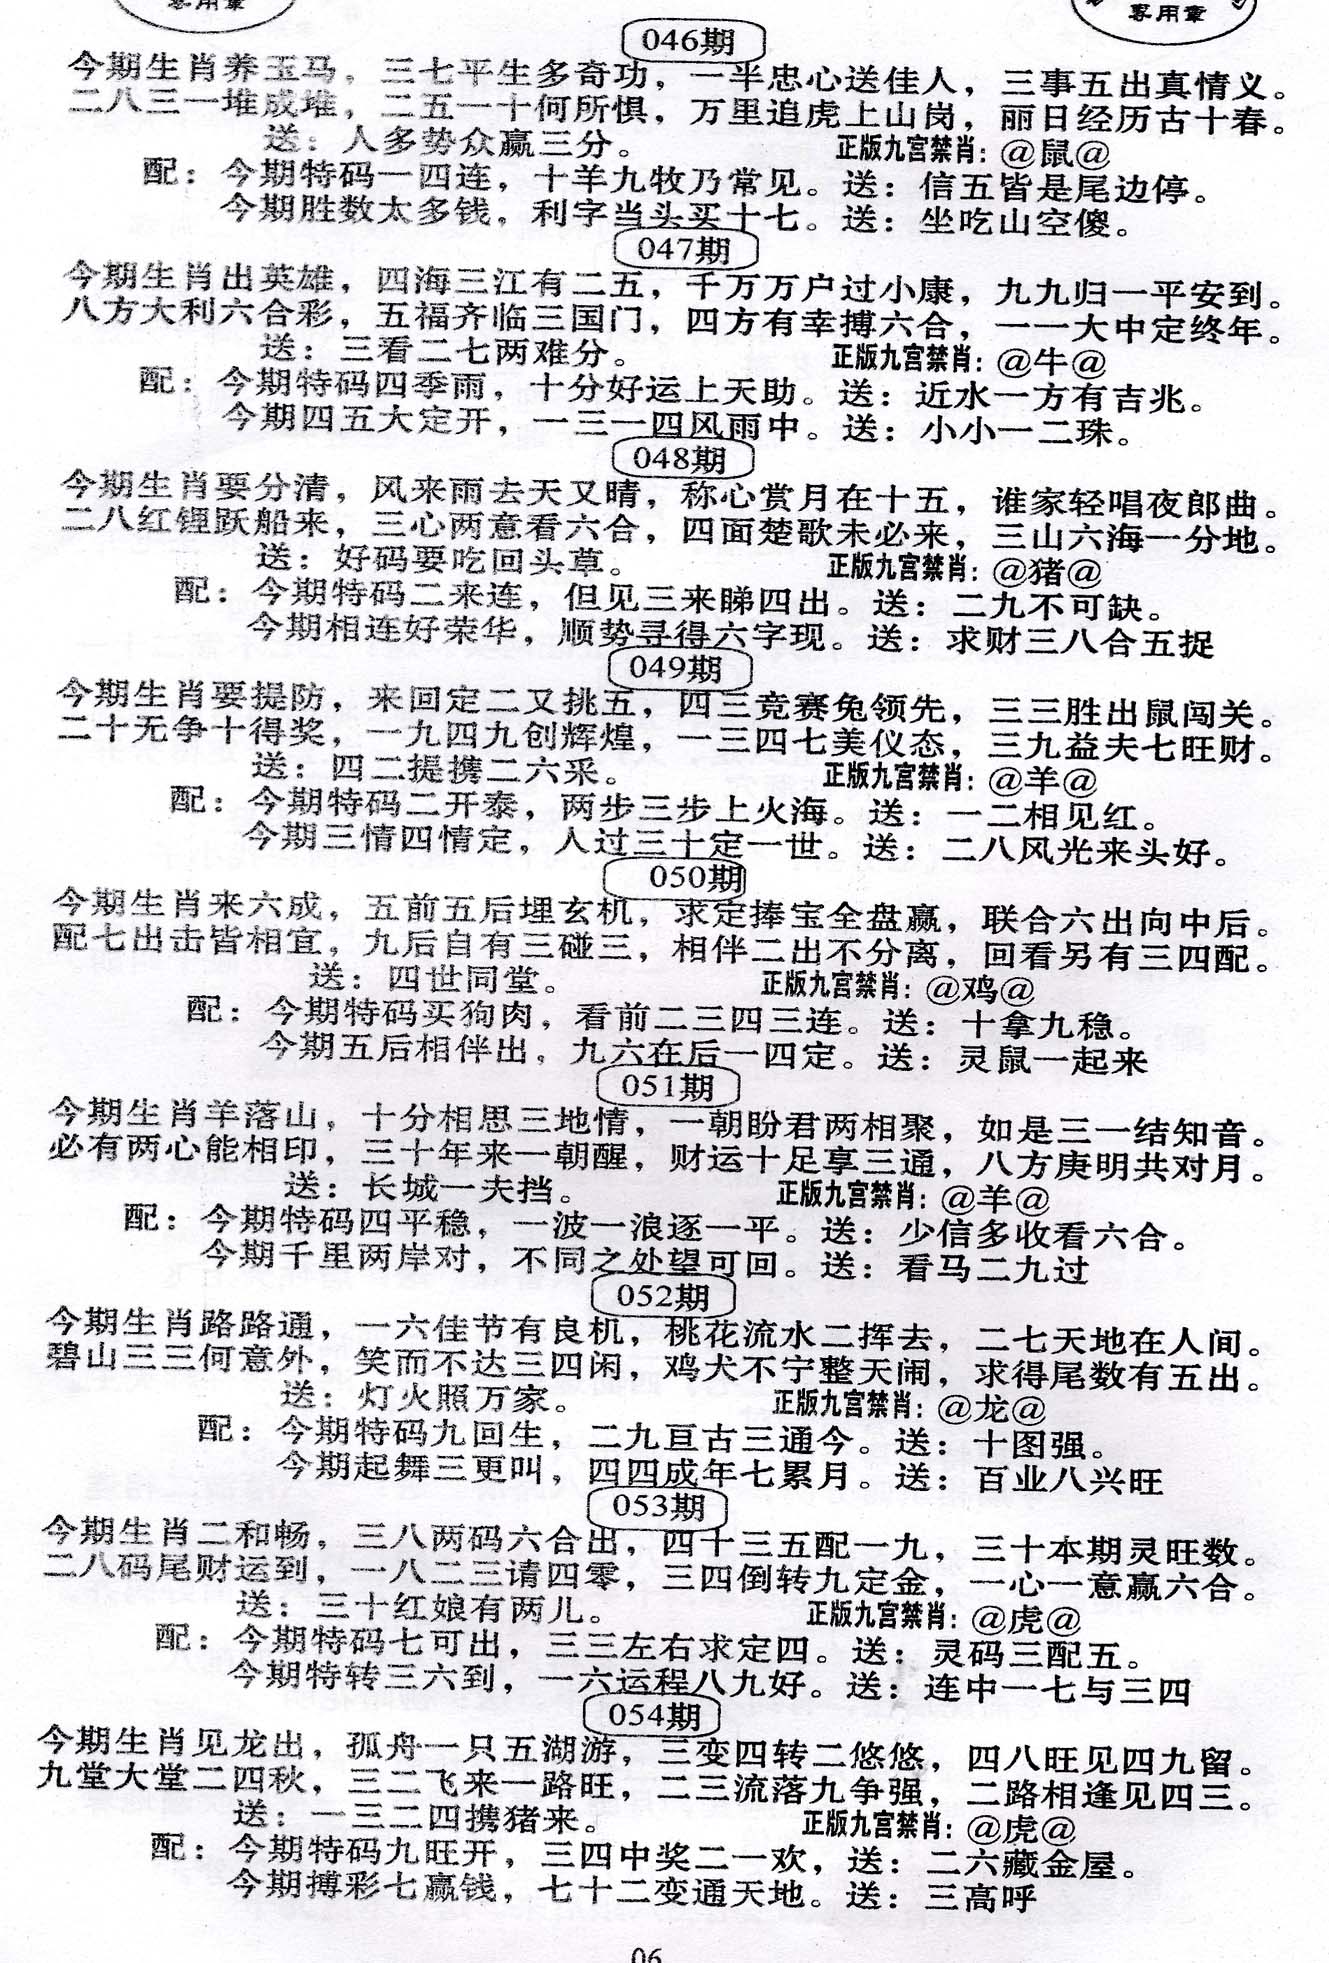 专用章
专用章
046期
今期生肖养玉马，三七平生多奇功，一半忠心送佳人，三事五出真情义。
二八三一堆成堆，二五一十何所惧，万里追虎上山岗，丽日经历古十春。
送：人多势众赢三分。 正版九宫禁肖：@鼠@
配：今期特码一四连，十羊九牧乃常见。送：信五皆是尾边停。
今期胜数太多钱，利字当头买十七。送：坐吃山空傻。
047期
今期生肖出英雄，四海三江有二五，千万万户过小康，九九归一平安到。
八方大利六合彩，五福齐临三国门，四方有幸搏六合，一一大中定终年。
送：三看二七两难分。 正版九宫禁肖：@牛@
配：今期特码四季雨，十分好运上天助。送：近水一方有吉兆。
今期四五大定开，一三一四风雨中。送：小小一二珠。
048期
今期生肖要分清，风来雨去天又晴，称心赏月在十五，谁家轻唱夜郎曲。
二八红鲤跃船来，三心两意看六合，四面楚歌未必来，三山六海一分地。
送：好码要吃回头草。 正版九宫禁肖：@猪@
配：今期特码二来连，但见三来睇四出。送：二九不可缺。
今期相连好荣华，顺势寻得六字现。送：求财三八合五捉
049期
今期生肖要提防，来回定二又挑五，四三竞赛兔领先，三三胜出鼠闯关。
二十无争十得奖，一九四九创辉煌，一三四七美仪态，三九益夫七旺财。
送：四二提携二六采。 正版九宫禁肖：@羊@
配：今期特码二开泰，两步三步上火海。送：一二相见红。
今期三情四情定，人过三十定一世。送：二八风光来头好。
050期
今期生肖来六成，五前五后埋玄机，求定捧宝全盘赢，联合六出向中后。
配七出击皆相宜，九后自有三碰三，相伴二出不分离，回看另有三四配。
送：四世同堂。 正版九宫禁肖：@鸡@
配：今期特码买狗肉，看前二三四三连。送：十拿九稳。
今期五后相伴出，九六在后一四定。送：灵鼠一起来
051期
今期生肖羊落山，十分相思三地情，一朝盼君两相聚，如是三一结知音。
必有两心能相印，三十年来一朝醒，财运十足享三通，八方庚明共对月。
送：长城一夫挡。 正版九宫禁肖：@羊@
配：今期特码四平稳，一波一浪逐一平。送：少信多收看六合。
今期千里两岸对，不同之处望可回。送：看马二九过
052期
今期生肖路路通，一六佳节有良机，桃花流水二挥去，二七天地在人间。
碧山三三何意外，笑而不达三四闲，鸡犬不宁整天闹，求得尾数有五出。
送：灯火照万家。 正版九宫禁肖：@龙@
配：今期特码九回生，二九亘古三通今。送：十图强。
今期起舞三更叫，四四成年七累月。送：百业八兴旺
053期
今期生肖二和畅，三八两码六合出，四十三五配一九，三十本期灵旺数。
二八码尾财运到，一八二三请四零，三四倒转九定金，一心一意赢六合。
送：三十红娘有两儿。 正版九宫禁肖：@虎@
配：今期特码七可出，三三左右求定四。送：灵码三配五。
今期特转三六到，一六运程八九好。送：连中一七与三四
054期
今期生肖见龙出，孤舟一只五湖游，三变四转二悠悠，四八旺见四九留。
九堂大堂二四秋，三二飞来一路旺，二三流落九争强，二路相逢见四三。
送：一三二四携猪来。 正版九宫禁肖：@虎@
配：今期特码九旺开，三四中奖二一欢，送：二六藏金屋。
今期搏彩七赢钱，七十二变通天地。送：三高呼
06